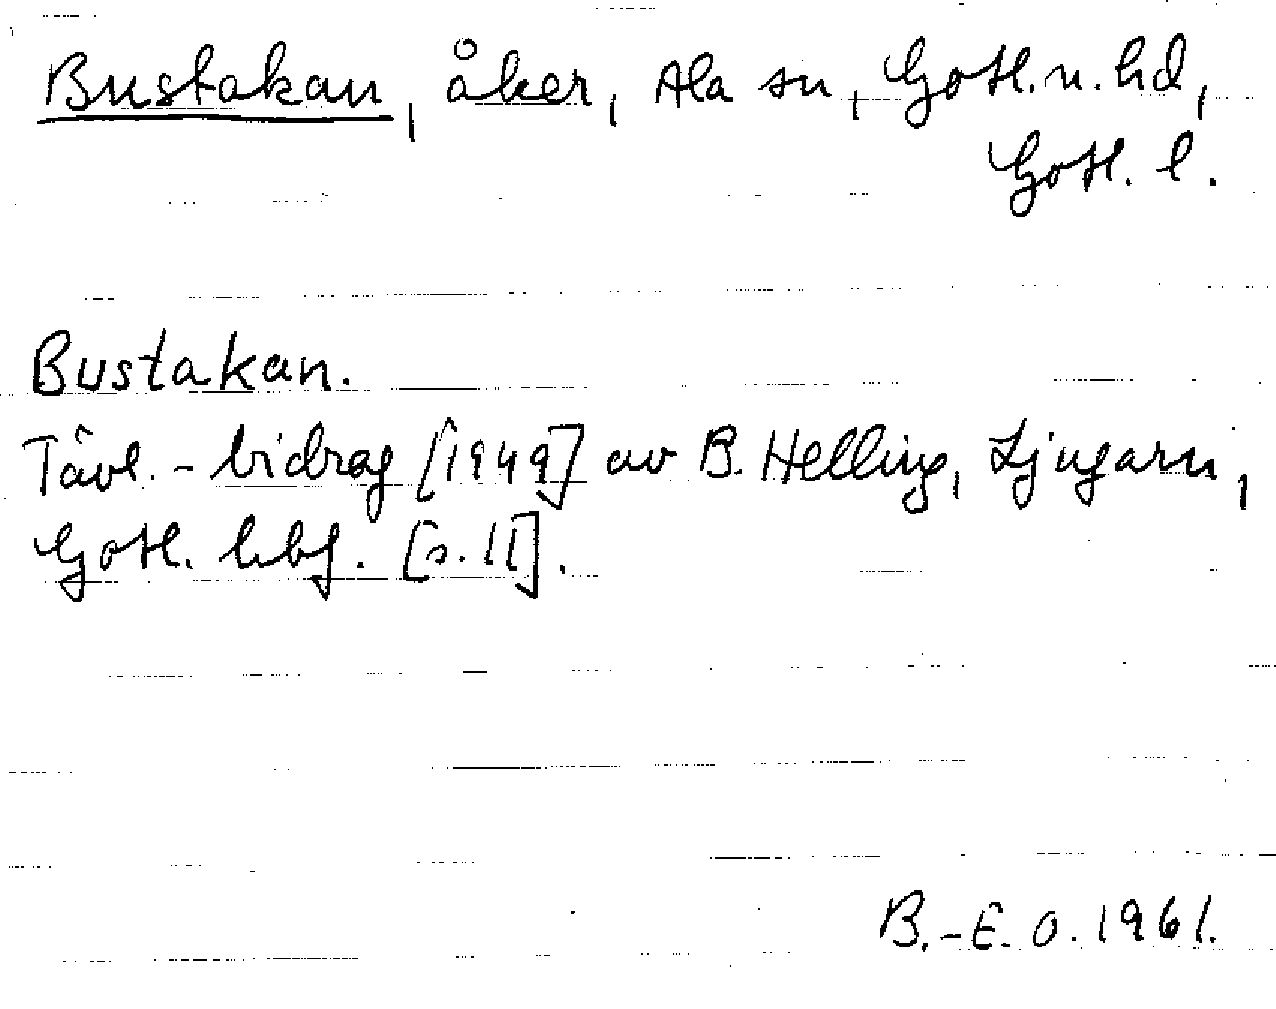 Bustakan, åker, Ala sn, Gotl. n. hd,
Gotl. l.
Bustakan.
Tävl.-bidrag [1949] av B. Helling, Ljugarn,
Gotl. hbf. [s. 11].
B.-E. O. 1961.